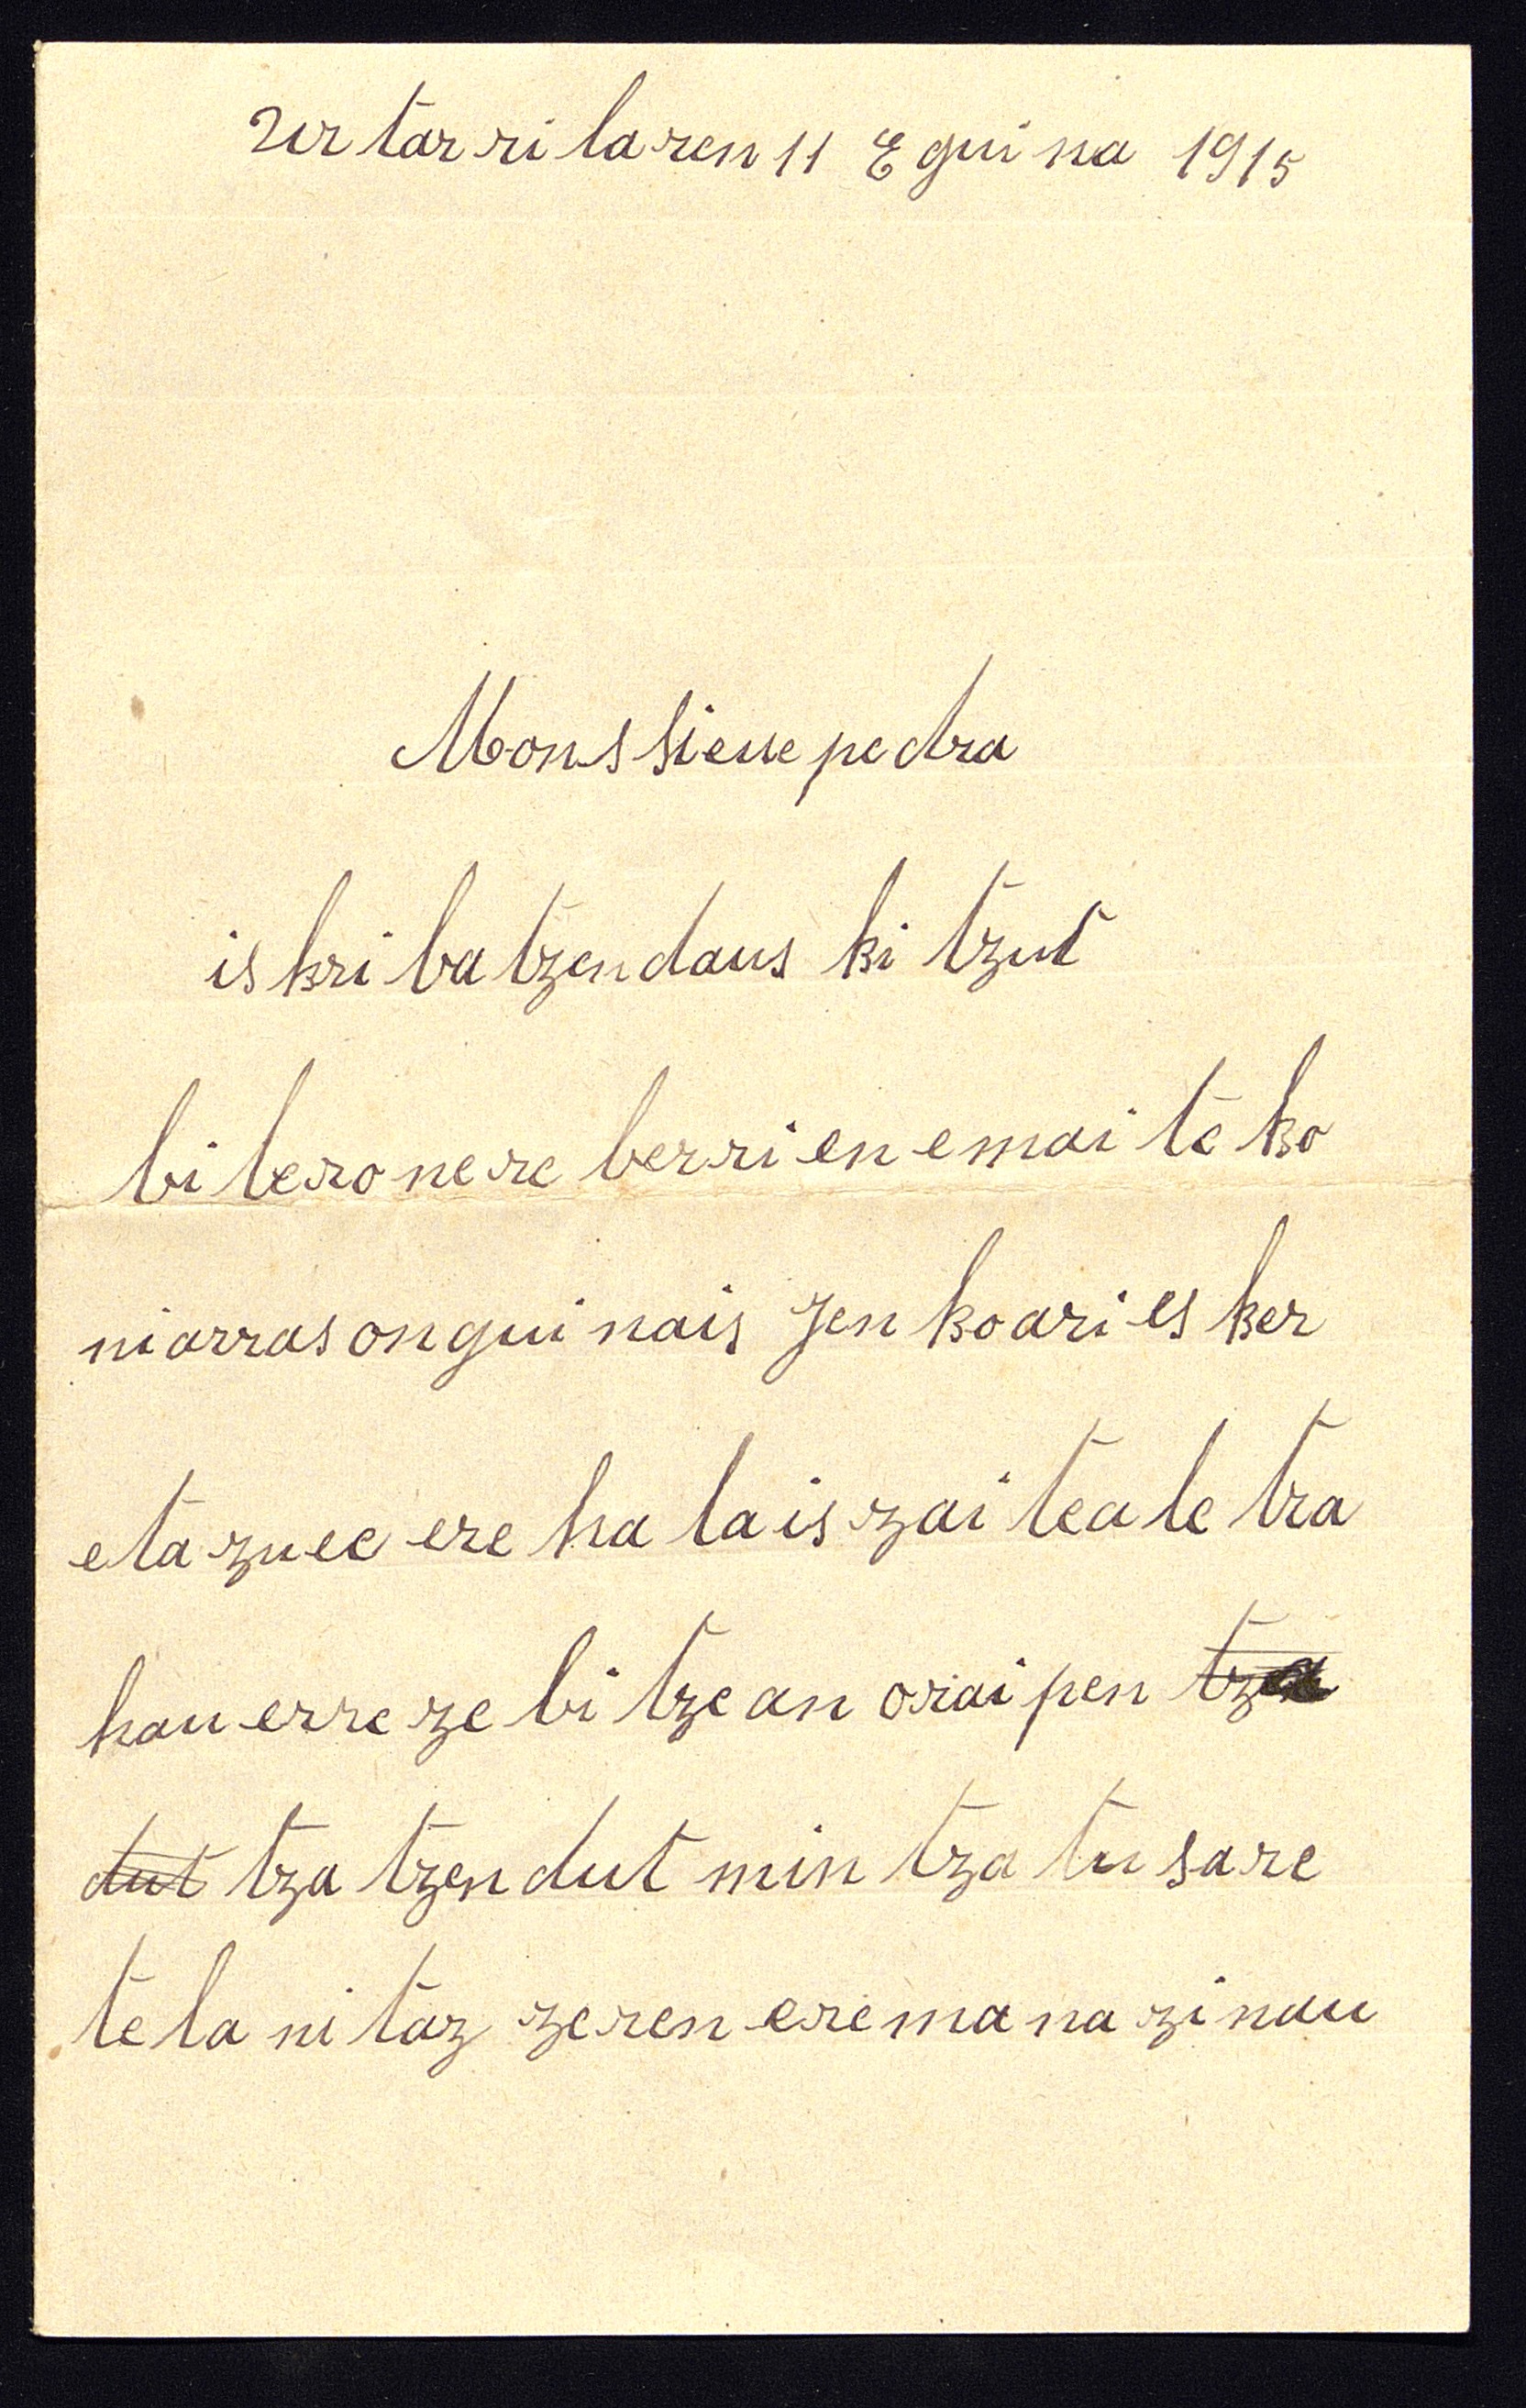 Urtarrilaren 11 Eguina 1915
Monssieue pedra
iskribatzen daus ki tzut
bi lerro nere berrien emaiteko
ni arras ongui nais Jenkoari esker
eta zuec ere hala is zaitea letra
hau errezebitzean oraipen tza
dut tzatzen dut mintzatu sare
tela nitaz zeren eremana zinau